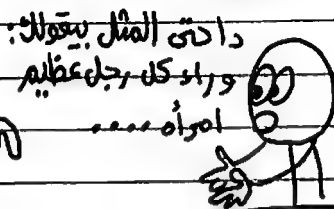 دا حتى المثل بيقولك:
وراء كل رجل عظيم
امرأه ....